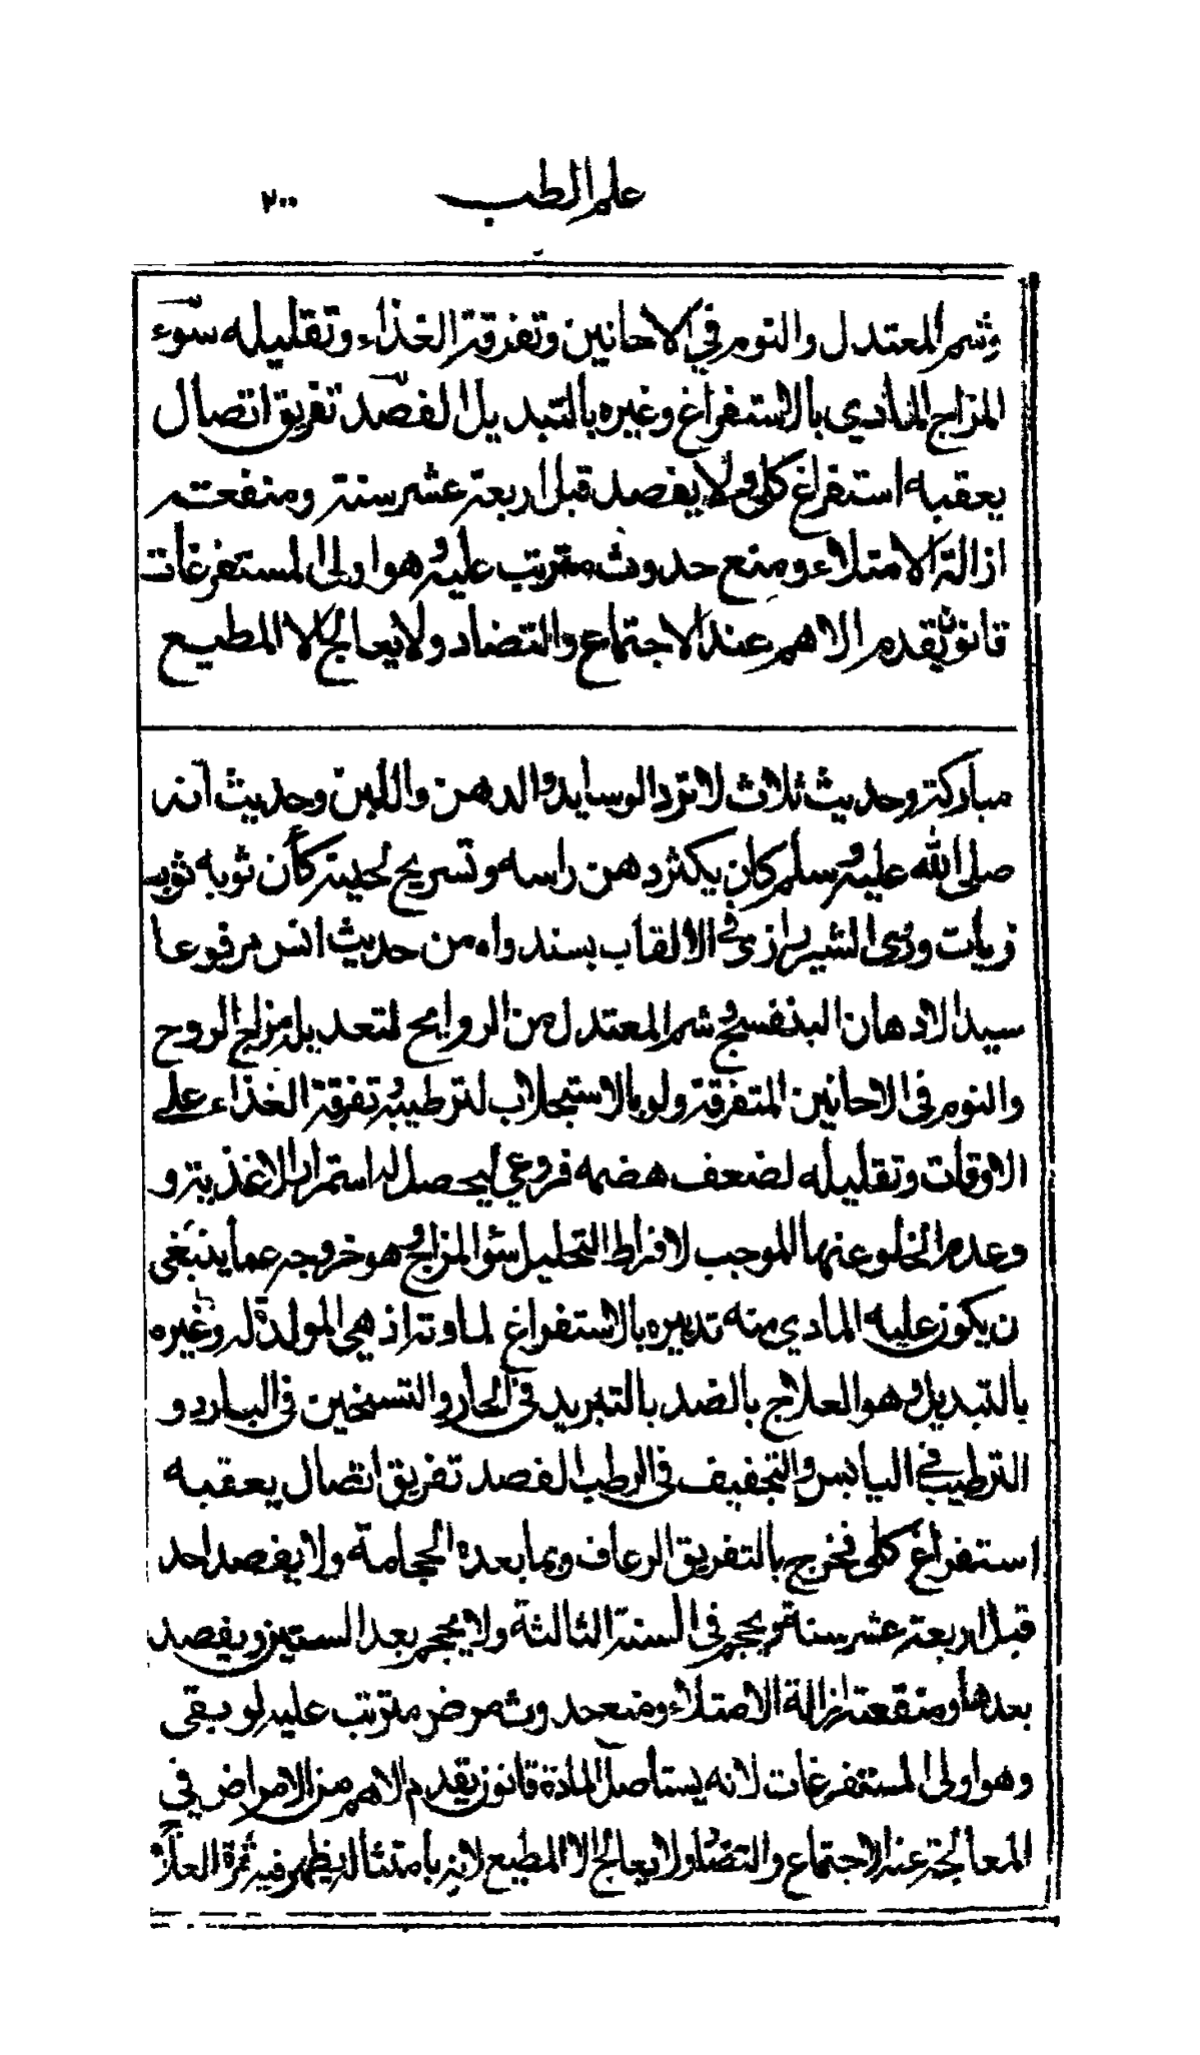 علم الطب ٢٠٠
وشم المعتدل والنوم في الاحانين وتفرقة الغذاء وتقليله سوء
المزاج المادي بالاستفراغ وغيره بالتبديل الفصد تفريق اتصال
يعقبه استفراغ كلي ولا يفصد قبل اربعة عشر سنة ومنفعته
ازالة الامتلاء ومنع حدوث مترتب عليه وهو اولى المستفرغات
قانون يقدم الاهم عند الاجتماع والتضاد ولا يعالج الا المطيع
مباركة وحديث ثلاث لا ترد الوسايد والدهن واللبن وحديث انه
صلى الله عليه وسلم كان يكثر دهن راسه وتسريح لحيته كأن ثوبه ثوب
زيات وروى الشيرازي في الالقاب بسند واه من حديث انس مرفوعا
سيد الادهان البنفسج وشم المعتدل من الروايح لتعديل مزاج الروح
والنوم في الاحانين المتفرقة ولو بالاستجلاب لترطيبه وتفرقة الغذاء على
الاوقات وتقليله لضعف هضمه فروعي ليحصل له استمراء الاغذية و
وعدم الخلو عنها الموجب لافراط التحليل سؤ المزاج وهو خروجه عما ينبغي
ن يكون عليه المادي منه تدبيره بالاستفراغ لمادته اذ هي المولدة له وغيره
بالتبديل وهو العلاج بالضد بالتبريد في الحار والتسخين في البارد و
الترطيب في اليابس والتجفيف في الرطب الفصد تفريق اتصال يعقبه
استفراغ كلى فخرج بالتفريق الرعاف وبما بعده الحجامة ولا يفصد احد
قبل اربعة عشر سنة ويحجم في السنة الثالثة ولا يحجم بعد الستين ويفصد
بعدها ومنفعته ازالة الامتلاء ومنع حدوث مرض مترتب عليه لو بقى
وهو اولى المستفرغات لانه يستأصل المادة قانون يقدم الاهم من الامراض في
المعالجة عند الاجتماع والتضاد ولا يعالج الا المطيع لانه بامتثاله يظهر فيه ثمرة العلاج